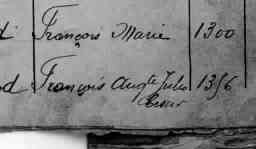 François Marie 1300
d François Aug.te Jules 1356